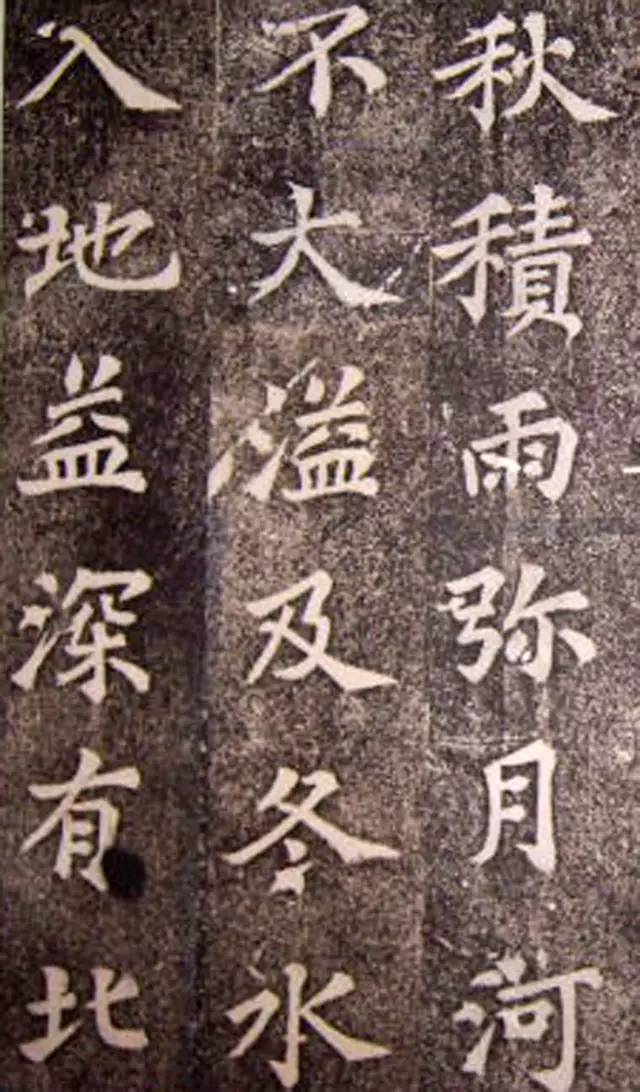 秋積雨弥月河
不大溢及冬水
入地益深有北